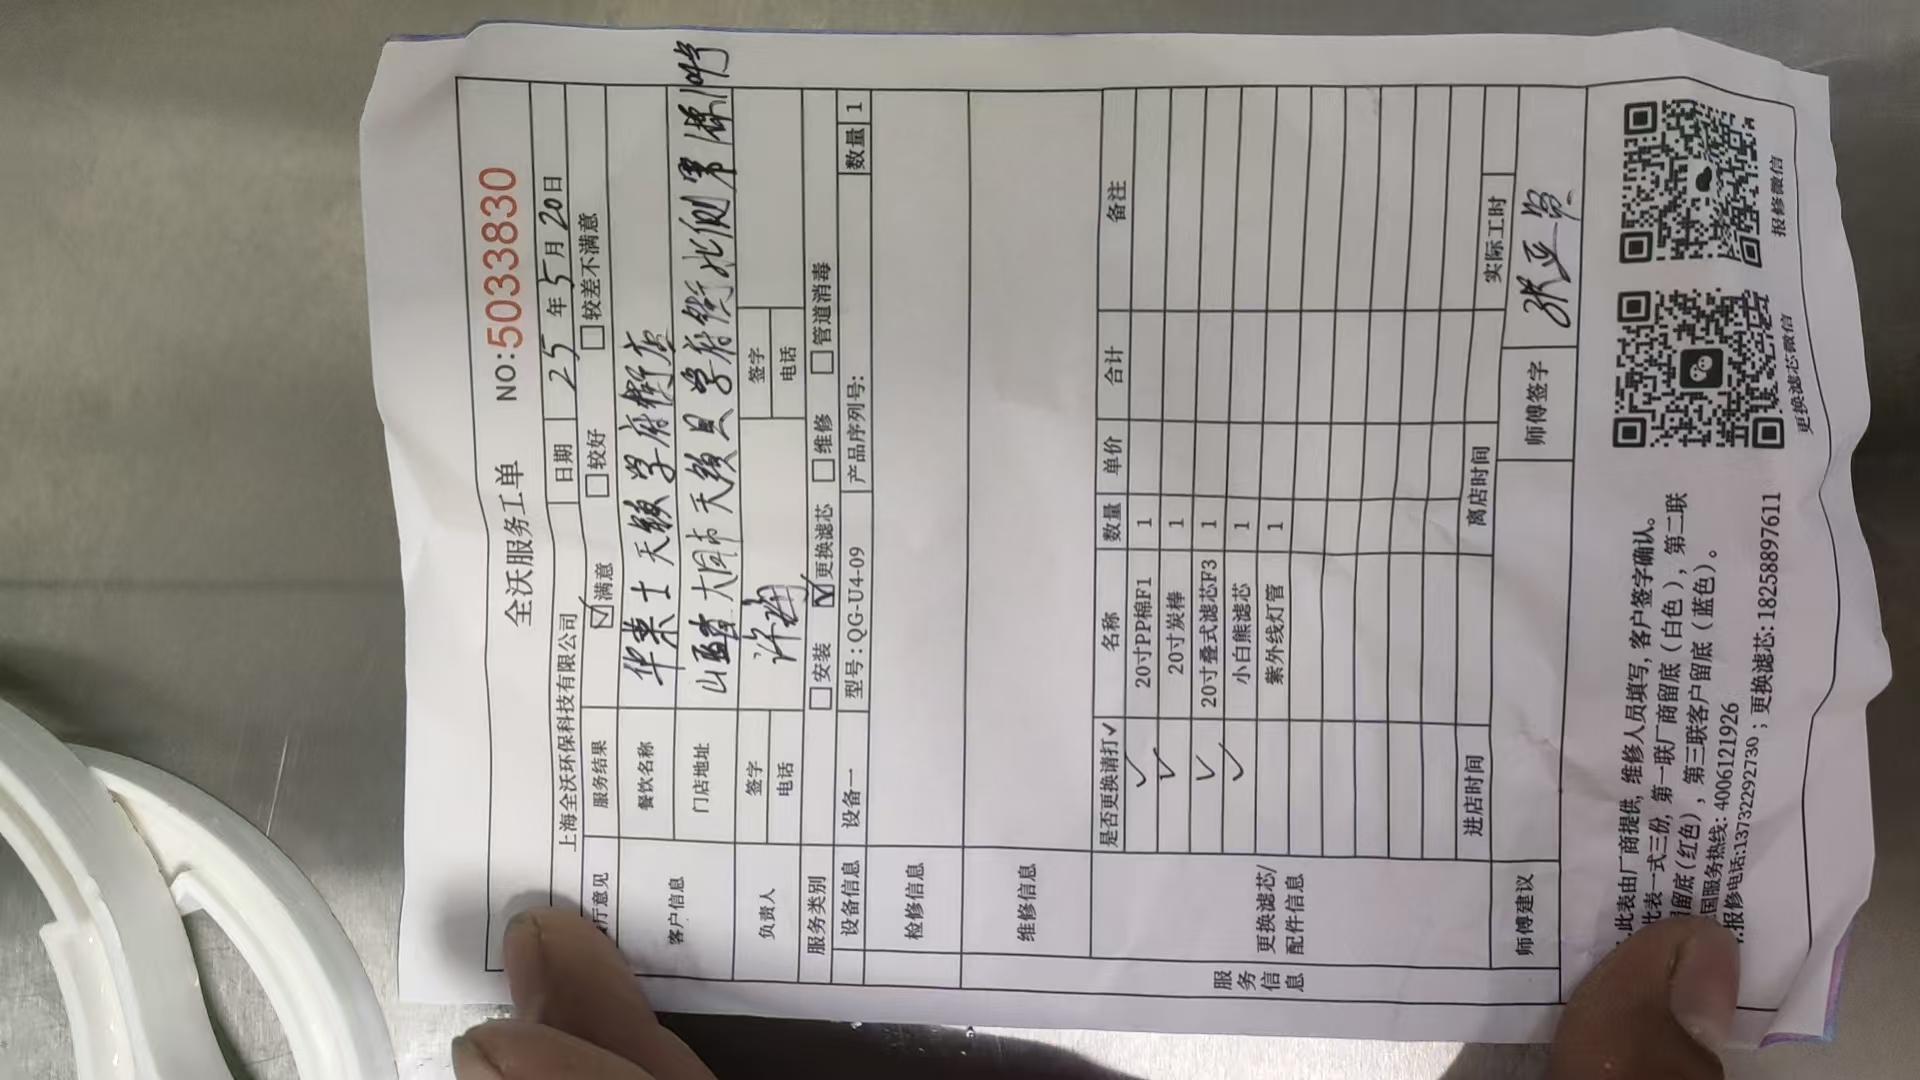 全沃服务工单 NO:5033830
上海全沃环保科技有限公司 日期 25年5月20日
厅意见 服务结果 ☑满意 □较好 □较差不满意
客户信息 餐饮名称 华莱士天镇学府街店
门店地址 山西省大同市天镇县学府街北侧
负责人 签字 签字
电话 电话
服务类别 □安装 ☑更换滤芯 □维修 □管道消毒
设备信息 设备一 型号:QG-U4-09 产品序列号: 数量 1
检修信息
维修信息
服务信息
更换滤芯/配件信息
是否更换请打✓ 名称 数量 单价 合计 备注
✓ 20寸PP棉F1 1
✓ 20寸炭棒 1
✓ 20寸叠式滤芯F3 1
✓ 小白熊滤芯 1
紫外线灯管 1
进店时间 离店时间 实际工时
师傅建议 师傅签字
此表由厂商提供,维修人员填写,客户签字确认。
此表一式三份,第一联厂商留底(白色),第二联
留底(红色),第三联客户留底(蓝色)。
国服务热线:4006121926
报修电话:13732292730;更换滤芯:18258897611
更换滤芯微信 报修微信